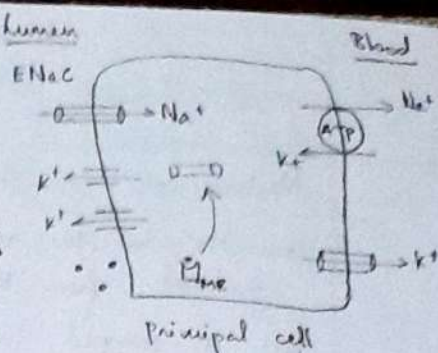 Lumen
Blood
ENaC
Na+
Na+
ATP
K+
K+
K+
K+
MR
Principal cell